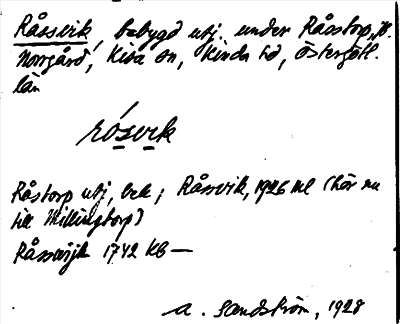 Råssvik, bebygd utj. under Råsstorp,
Norrgård, Kisa sn, Kinda hd, Östergötl.
län
rósvik
Råstorp utj, bek; Råssvik, 1926 ml (hör nu
till Millingtorp)
Råsswijk 1742 KB—
A. Sandström, 1928